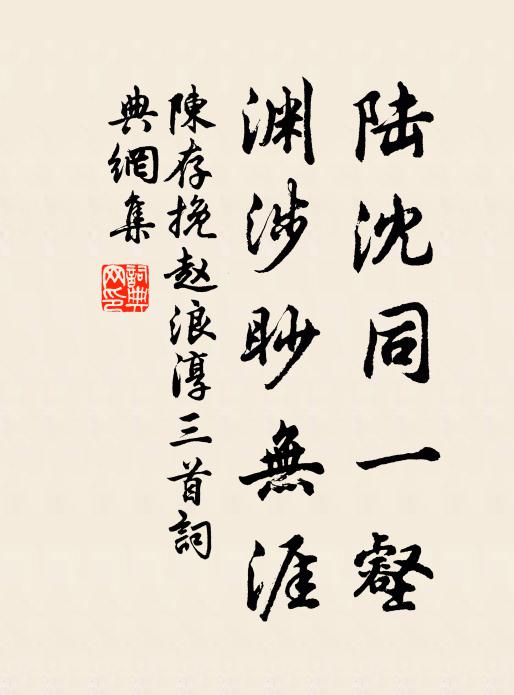 陆沈同一壑
渊涉眇無涯
陳存挽赵浪淳三首詞
典網集
詞典网印